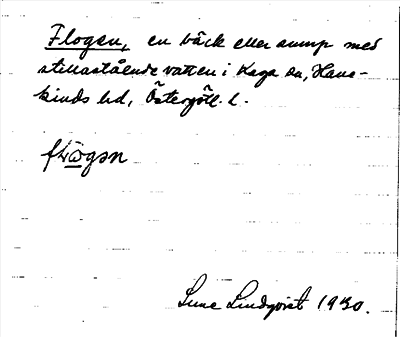 Flogen, en bäck eller sump med
stillastående vatten i Kaga sn, Hane-
kinds hd, Östergötl. l.
Sune Lindqvist 1930.